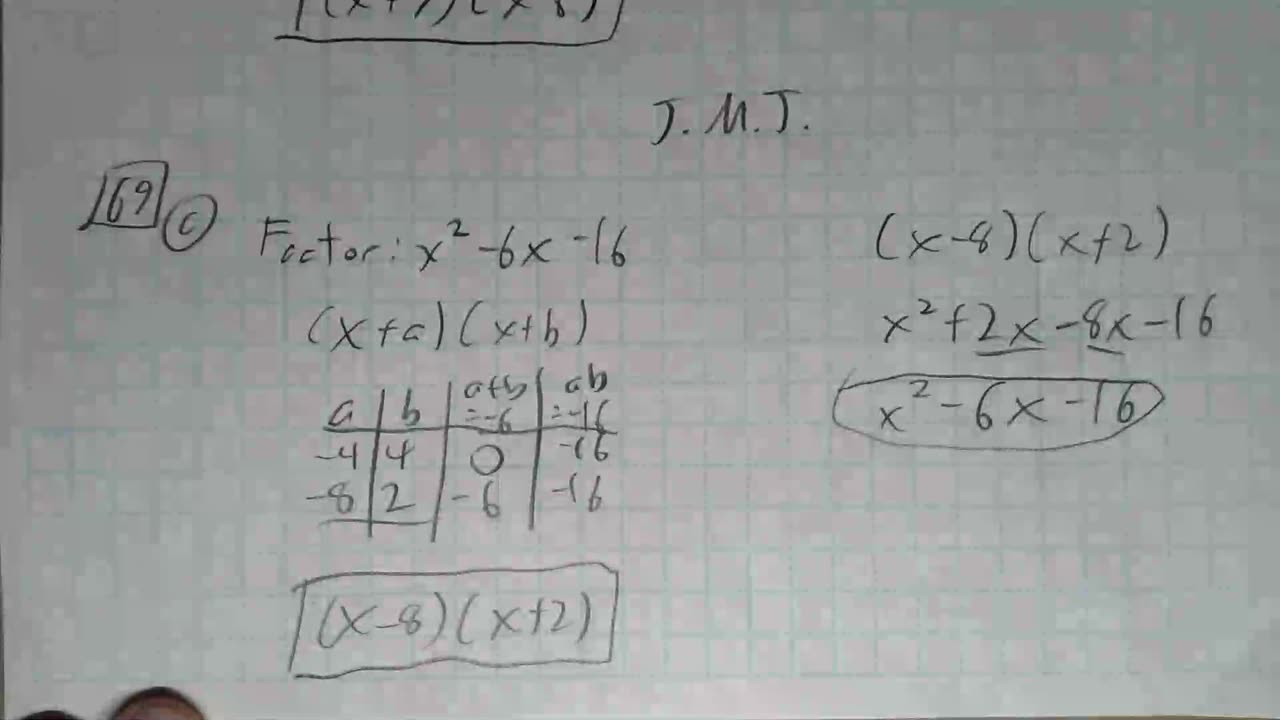 J.M.J.
169 c Factor: x² -6x -16
(x+a)(x+b)
a | b | a+b =-6 | ab =-16
-4 | 4 | 0 | -16
-8 | 2 | -6 | -16
(x-8)(x+2)
(x-8)(x+2)
x²+2x-8x-16
x²-6x-16